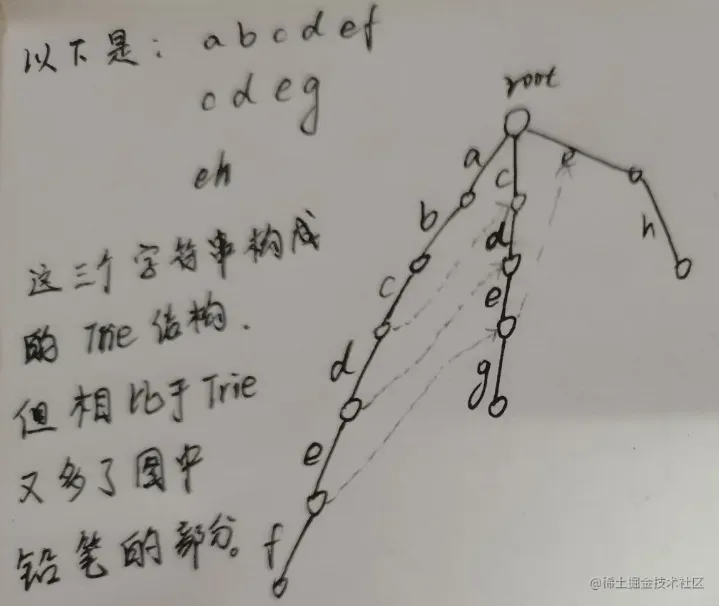 以下是: abcdef
cdeg
eh
这三个字符串构成
的 Trie 结构.
但相比于Trie
又多了图中
铅笔的部分。
root
a
c
e
b
d
h
c
e
d
g
e
f
@稀土掘金技术社区